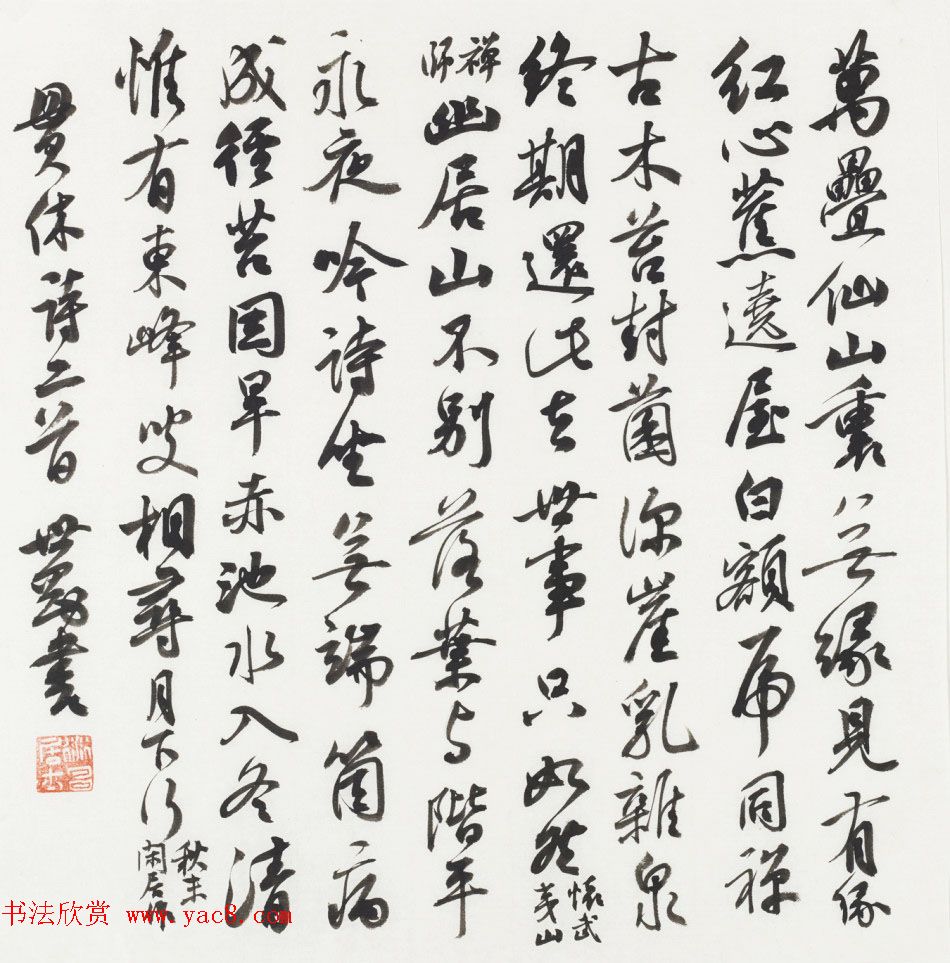 萬疊仙山裏無緣見有緣
紅心蕉遶屋白額虎同禪
古木苔封菌深崖乳雜泉
終期還此去世事只如然懷武夷山
禪師幽居山不別落葉與階平
永夜吟詩坐無端箇病
成徑苔因旱赤池水入冬清
惟有東峰叟相尋月下行秋末閑居作
貫休詩二首 世書
书法欣赏 www.yac8.com